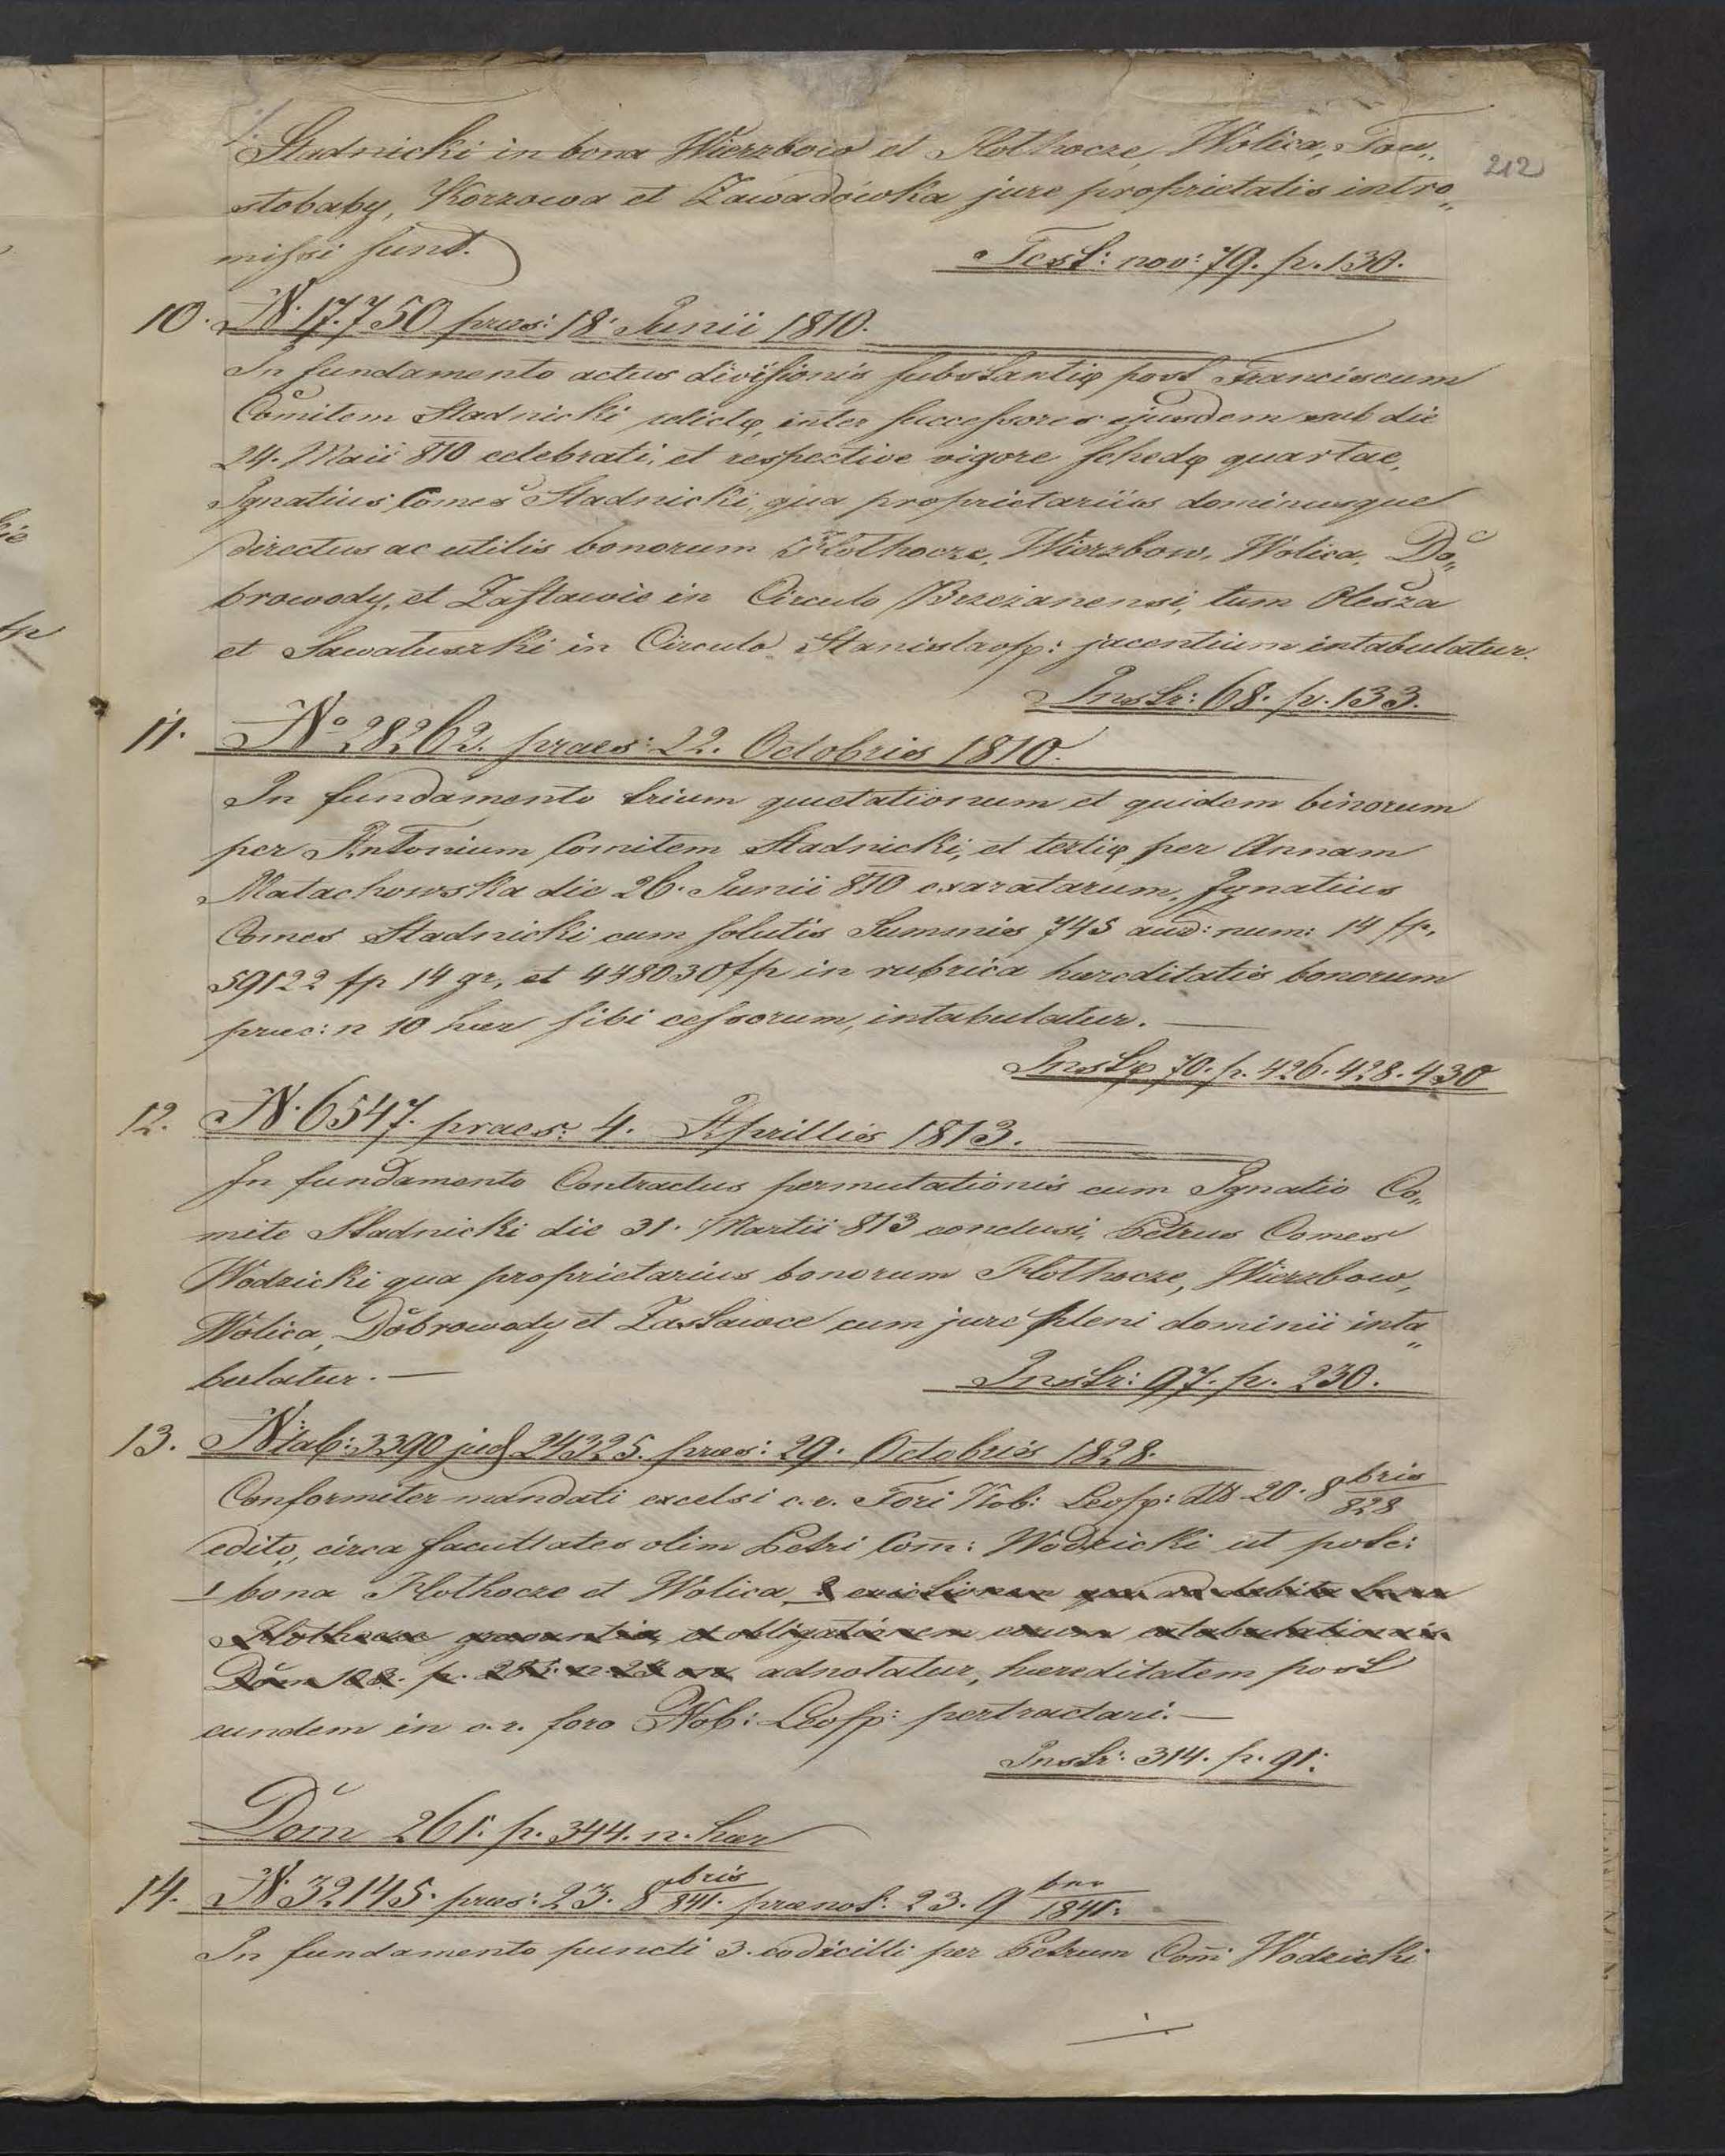 Stadnicki in bona Wierzbow et Hołhocze, Wolica, Tou„
212
stobaby, Korzowa et Zawadówka jure proprietatis intro„
missi sunt.
Test: nov: 79. p. 130.
10. N. 17.750 praes: 18. Junii 1810.
In fundamento actus divisionis substantię post Franciscum
Comitem Stadnicki relictę, inter successores ejusdem sub die
24. Maii 810 celebrati, et respective vigore schedę quartae,
Ignatius Comes Stadnicki, qua proprietariüs dominusque
directus ac utilis bonorum Hołhocze, Wierzbow, Wolica, Do„
browody, et Zastawie in Circulo Brzeżanensi, tum Olesza
et Sawałuszki in Circulo Stanislaop: jacentium intabulatur.
Instr: 68. p. 133.
11. No 28262. praes: 22. Octobris 1810.
In fundamento trium quietationum et quidem binorum
per Antonium Comitem Stadnicki, et tertię per Annam
Małachowska die 26. Junii 810 exaratarum, Ignatius
Comes Stadnicki cum solutis Summis 745 aud: num: 14 fp.
59122 fp 14 gr, et 448030 fp in rubrica haereditatis bonorum
praec: n 10 haer sibi cessorum, intabulatur.—
Instę 70. p. 426. 428. 430
12. N. 6547. praes: 4. Aprillis 1813.
In fundamento Contractus permutationis cum Ignatio Co„
mite Stadnicki die 31. Martii 813 conclusi, Petrus Comes
Wodzicki qua proprietarius bonorum Hołhocze, Wierzbow,
Wolica, Dobrowody et Zastawce cum jure pleni dominii inta„
bulatur.—
Instr: 97. p. 230.
13. N tab: 3390 jud 24325. praes: 29. Octobris 1828.
Conformiter mandati excelsi c. r. Fori Nob: Leop: dtt 20. 8bris 828
edito, circa facultates olim Petri Com: Wodzicki ut pote:
1 bona Hołhocze et Wolica, 2 evictionem debita bona
Hołhocze gravantia, et obligationem eorum extabulationis
Dom 103. p. adnotatur, haereditatem post
eundem in c. r. foro Nob: Leop: pertractari.—
Instr: 314. p. 91.
Dom 261. p. 344. n. haer
14. N. 32145. praes: 23. 8bris 841. praenot: 23. 9ber 1841.
In fundamento puncti 3. codicilli per Petrum Com: Wodzicki
./.